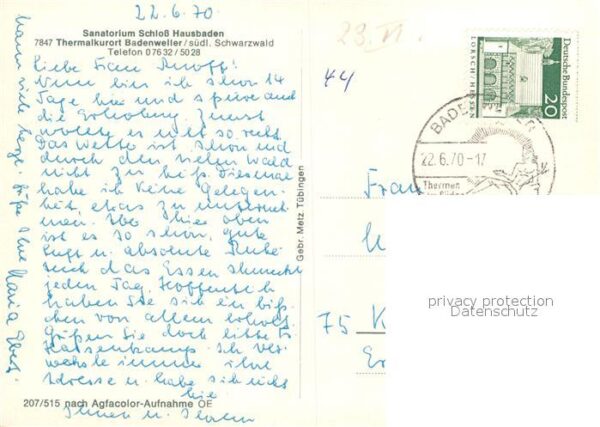 22.6.70
Sanatorium Schloß Hausbaden
7847 Thermalkurort Badenweiler / südl. Schwarzwald
Telefon 07632/5028
liebe Frau
Nun bin ich schon 14
Tage hier und spüre auch
die Erholung. Zuerst
wollte es nicht so recht.
Das Wetter ist schön und
durch den vielen Wald
nicht zu heiß. Diesmal
habe ich keine Gelegen-
heit, etwas zu unterneh-
men. Aber hier oben
ist es so schön, gute
Luft u. absolute Ruhe
auch das Essen schmeckt
jeden Tag. Hoffentlich
haben Sie sich ein biß-
chen von allem erholt.
Grüßen Sie doch bitte Fr.
Hassenkamp. Ich ver-
wechsle immer ihre
Adresse u. habe sie nicht
hier
Ihnen u.
viele herzl. Grüße Ihre Maria
207/515 nach Agfacolor-Aufnahme OE
Gebr. Metz, Tübingen
23. VI.
44
Deutsche Bundespost
20
LORSCH/HESSEN
22.6.70-17
Thermen
Frau
75 K
privacy protection
Datenschutz